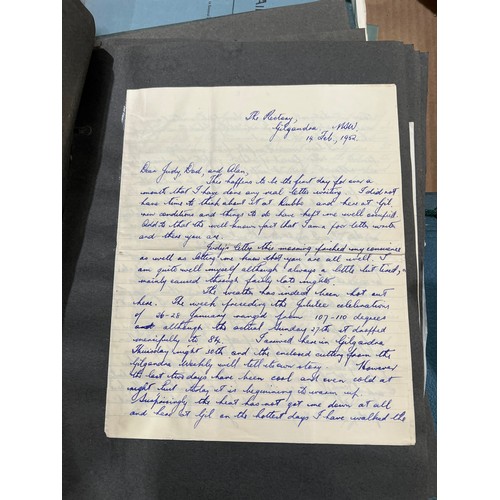 The Rectory,
Gilgandra NSW.
14 Feb., 1952.
Dear Judy, Dad, and Alan,
This happens to be the first day for over a
month that I have done any real letter writing. I did not
have time to think about it at Dubbo and here at Gil
new conditions and things to do have kept me well occupied.
Add to that the well-known fact that I am a poor letter writer
and there you are.
Judy's letter this morning pricked my conscience
as well as letting me know that you are all well. I am
quite well myself although always a little bit tired,
mainly caused through fairly late nights.
The weather has indeed been hot out
here. The week preceding the Jubilee celebrations
of 26-28 January ranged from 107-110 degrees
although the actual Sunday 27th it dropped
mercifully to 84. I arrived here in Gilgandra
Thursday night 30th and the enclosed cutting from the
Gilgandra Weekly will tell its own story. However
the last two days have been cool and even cold at
night but today it is beginning to warm up.
Surprisingly the heat has not got me down at all
and here at Gil on the hottest days I have walked the